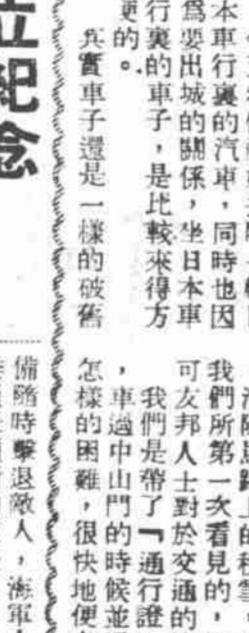 本車行裏的汽車，同時也因
爲要出城的關係，坐日本車
行裏的車子，是比較來得方
便的。
其實車子還是一樣的破舊
我們所第一次看見的，
可友邦人士對於交通的
我們是帶了「通行證
，車過中山門的時候並
怎樣的困難，很快地便
立紀念
備隨時擊退敵人，海軍